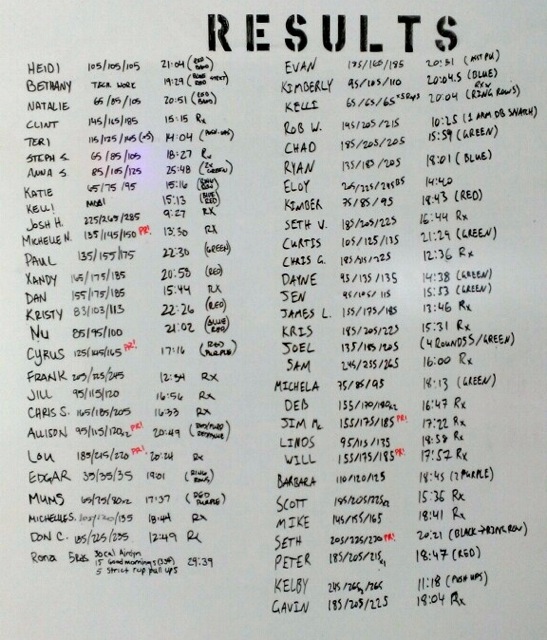 RESULTS
HEIDI 105/105/105 21:04 (RED BAND)
BETHANY TECH WORK 19:29
NATALIE 65/85/105 20:51 (RED BAND)
CLINT 145/165/185 15:15 Rx
TERI 115/125/145 14:04 (PUSH-UPS)
STEPH S. 65/85/105 18:27 Rx
ANNA S. 85/105/125 25:48 (2x GREEN)
KATIE 65/75/95 15:16
KELLI MOBI 15:13 (BLUE RED)
JOSH H. 225/265/285 9:27 RX
MICHELLE N. 135/145/150 PR! 13:50 RX
PAUL 135/155/175 22:30 (GREEN)
XANDY 165/175/185 20:58 (RED)
DAN 155/175/185 15:44 RX
KRISTY 83/103/113 22:26 (RED)
NU 85/95/100 21:02 (BLUE RED)
CYRUS 125/145/165 PR! 17:16 (RED PURPLE)
FRANK 205/225/245 12:54 RX
JILL 95/115/120 16:56 RX
CHRIS S. 165/185/205 16:33 RX
ALLISON 95/115/120x2 PR! 20:49
LOU 185/215/220 PR! 20:24 Rx
EDGAR 35/35/35 19:01 (RING ROWS)
MUMS 65/75/80x2 17:37 (RED PURPLE)
MICHELLE S. 105/120/135 18:44 Rx
DON C. 185/225/235 12:49 Rx
Rona 5Rds 30cal Airdyn 15 Good mornings (35#) 5 strict rup pull ups 29:39
EVAN 135/160/185 20:31
KIMBERLY 95/105/110 20:04.5 (BLUE)
KELLI 65/65/65 20:04 (RING ROWS)
ROB W. 145/205/215 10:25 (1 ARM DB SNATCH)
CHAD 185/205/205 15:59 (GREEN)
RYAN 135/185/205 18:01 (BLUE)
ELOY 205/225/245 14:40
KIMBER 75/85/95 18:43 (RED)
SETH V. 185/205/225 16:44 Rx
CURTIS 105/125/135 21:29 (GREEN)
CHRIS G. 185/215/225 12:36 Rx
DAYNE 95/135/135 14:38 (GREEN)
JEN 95/105/115 15:53 (GREEN)
JAMES L. 155/175/185 13:46 Rx
KRIS 185/205/225 15:31 Rx
JOEL 135/185/205 (4 ROUNDS/GREEN)
SAM 245/255/265 16:00 Rx
MICHELA 75/85/95 18:13 (GREEN)
DEB 155/170/180x2 16:47 Rx
JIM Mc 155/175/185 PR! 17:22 Rx
LINDS 95/115/125 18:58 Rx
WILL 155/175/185 PR! 17:57 Rx
BARBARA 110/120/125 18:45 (2 PURPLE)
SCOTT 185/205/225 15:36 Rx
MIKE 145/155/165 18:41 Rx
SETH 205/225/230 PR! 20:21 (BLACK→RING ROW)
PETER 185/205/215 18:47 (RED)
KELBY 245/265/265 11:18 (PUSH UPS)
GAVIN 185/205/225 18:04 Rx